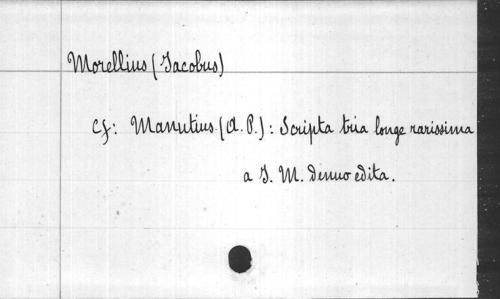 Morellius (Jacobus)
cf: Manutius (A. P.): Scripta tria longe rarissima
a J. M. denuo edita.